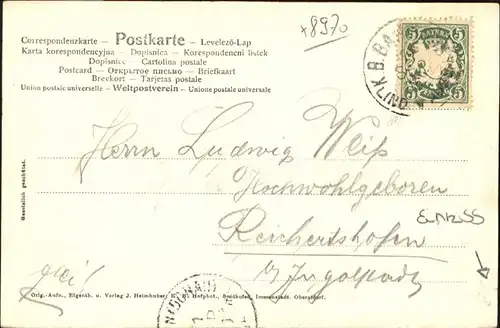 +8970
Correspondenzkarte – Postkarte – Levelező-Lap
Karta korespondencyjna – Dopisnica – Korespondenčni listek
Dopisnice – Cartolina postale
Postcard – Открытое письмо – Briefkaart
Brevkort – Tarjetas postale
Union postale universelle – Weltpostverein – Unione postale universale
BAYERN
5 5
K.B.BA
LIND
Herrn Ludwig Weiß
Hochwohlgeboren
Reichertshofen
b/ Ingolstadt
frei!
Gesetzlich geschützt.
Orig.-Aufn., Eigenth. u. Verlag J. Heimhuber, K. B. Hofphot., Sonthofen, Immenstadt, Oberstdorf.